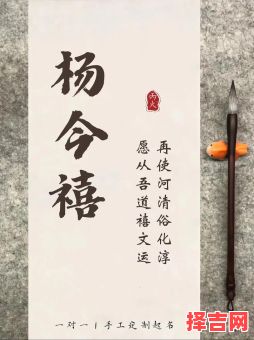 杨今禧
丙火
再使河清俗化淳
愿从吾道禧文运
一对一丨手工定制起书
择吉网